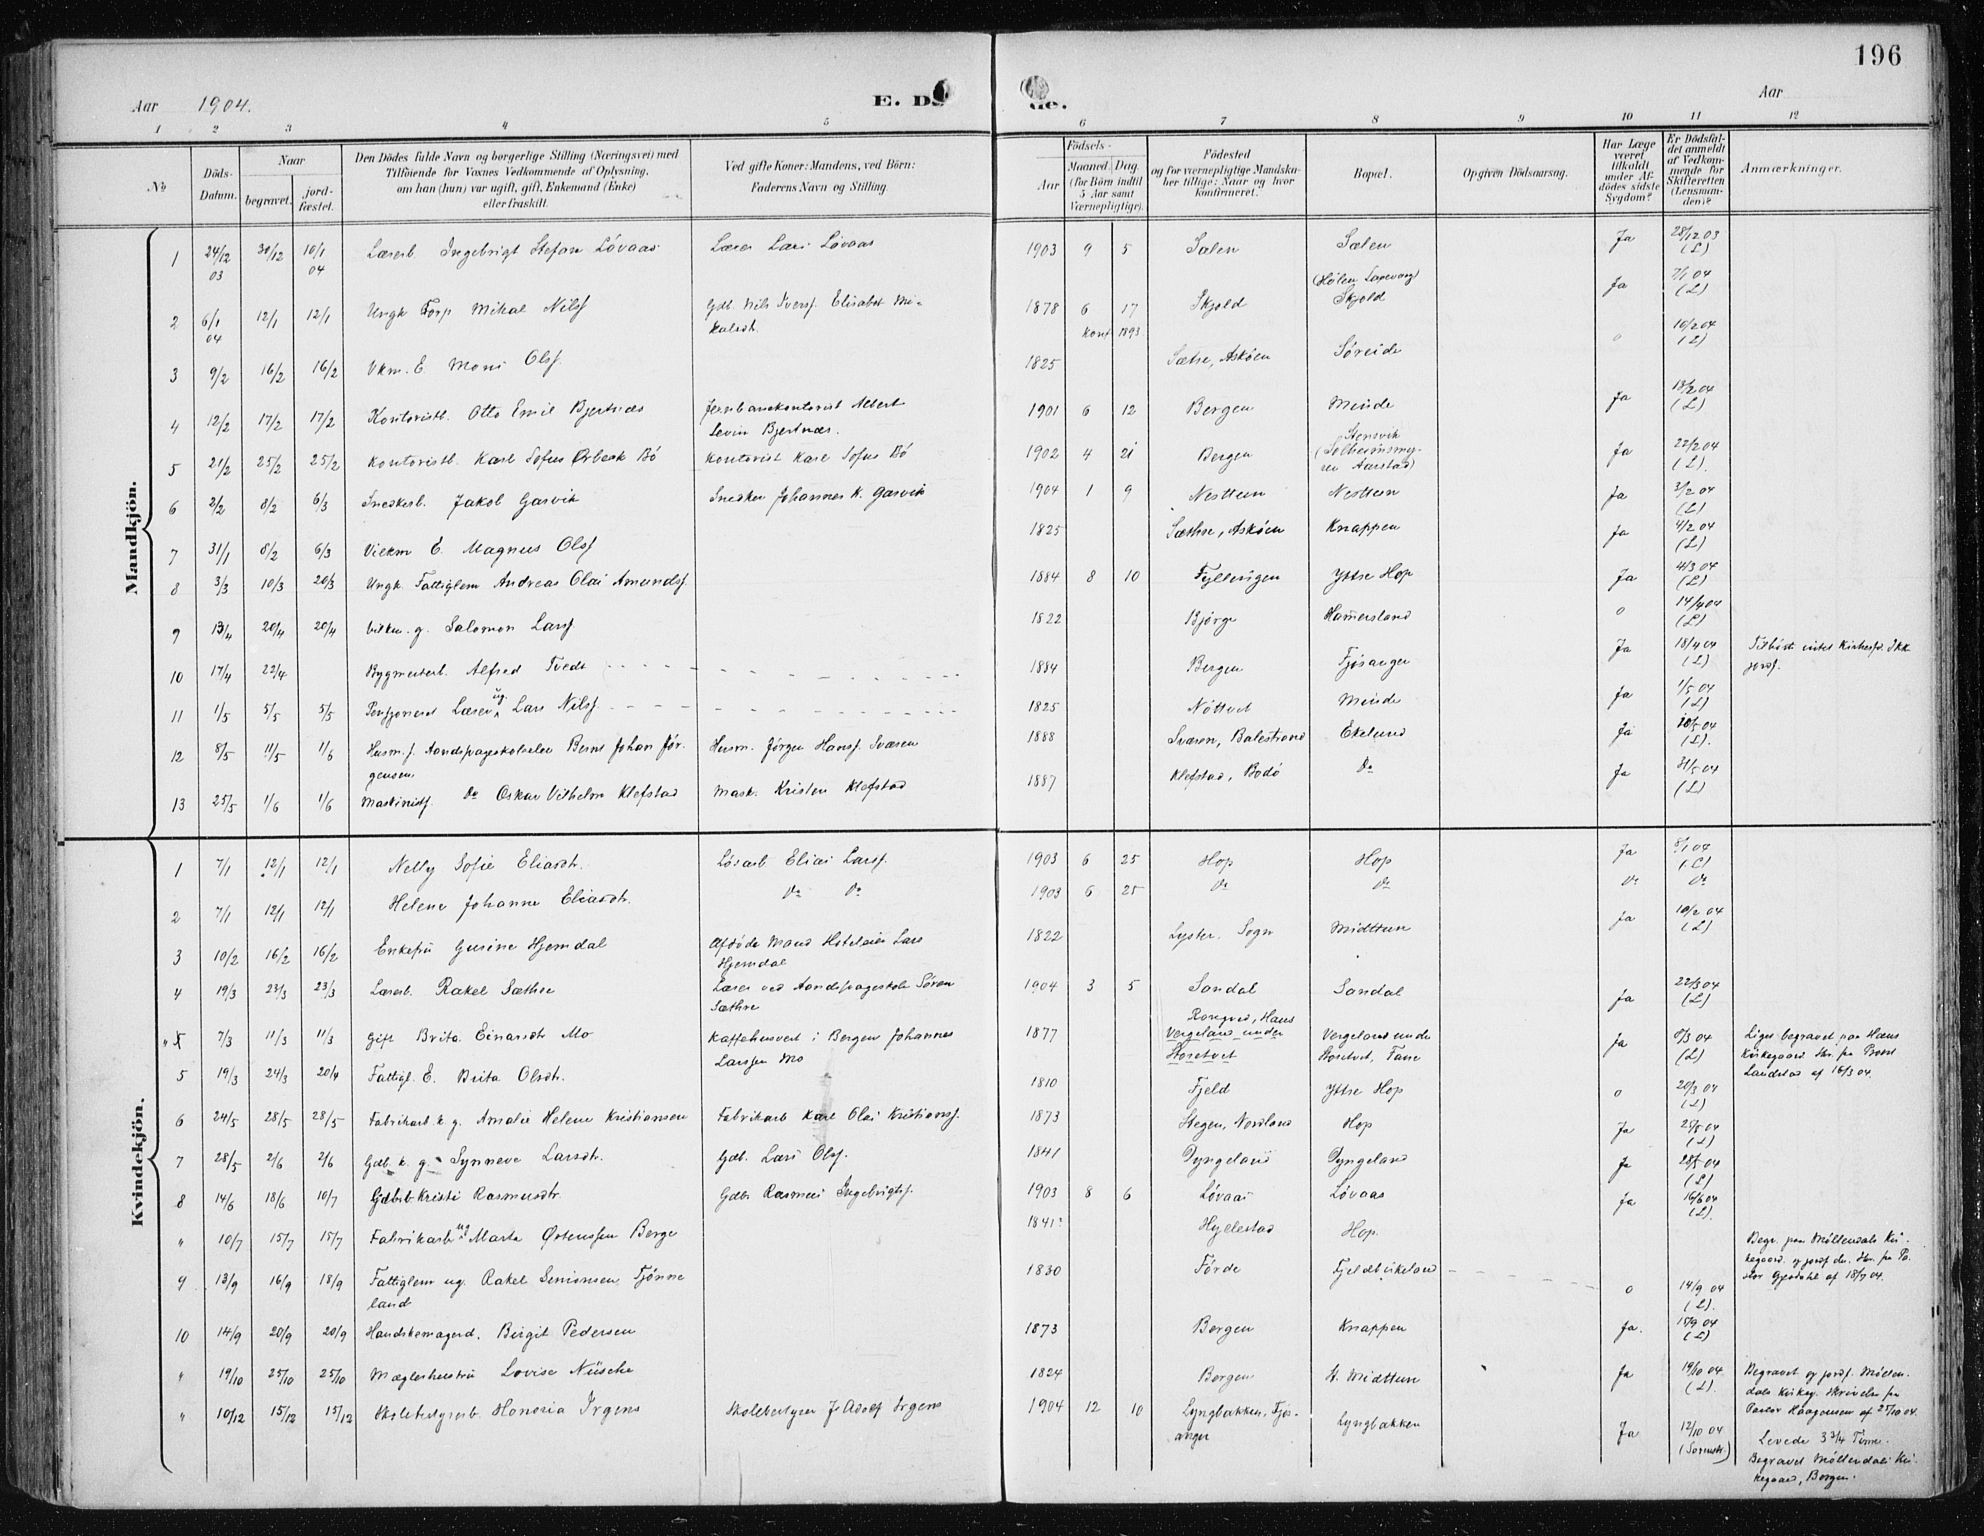 196
Aar 1904.
E. Dø
de.
Aar
1 2 3 4 5 6 7 8 9 10 11 12
No
Döds-Datum.
Naar
begravet.
jord-fæstet.
Den Dödes fulde Navn og borgerlige Stilling (Næringsvei) med
Tilföiende for Voxnes Vedkommende af Oplysning,
om han (hun) var ugift, gift, Enkemand (Enke)
eller fraskilt.
Ved gifte Koner: Mandens, ved Börn:
Faderens Navn og Stilling.
Födsels-
Aar
Maaned Dag
(for Börn indtil
5 Aar samt
Værnepligtige).
Födested
og for værnepligtige Mandska-
ber tillige: Naar og hvor
konfirmeret.
Bopæl.
Opgiven Dödsaarsag.
Har Læge
været
tilkaldt
under Af-
dödes sidste
Sygdom?
Er Dödsfal-
det anmeldt
af Vedkom-
mende for
Skifteretten
(Lensman-
den)?
Anmærkninger.
Mandkjön.
1 24/12 03 30/12 10/1 04 Lærerb. Ingebrigt Stefan Lövaas Lærer Lars Lövaas 1903 9 5 Sælen Sælen Ja 28/12 03 (L)
2 6/1 04 12/1 12/1 Ungk Torp Mikal Nilsf Gdb. Nils Iversf. Elisabet Mi-
kalsdt. 1878 6 17 Skjold Skjold Ja 7/1 04 (L)
konf 1893
3 9/2 16/2 16/2 Vkm. E. Mons Olsf. 1825 Sætre, Asköen Söreide o 10/2 04 (L)
4 12/2 17/2 17/2 Kontoristb. Otto Emil Bjertnæs Jernbanekontorist Albert
Levin Bjertnæs. 1901 6 12 Bergen Minde Ja 18/2 04 (L)
5 21/2 25/2 25/2 Kontoristb. Karl Sofus Ørbeck Bö Kontorist Karl Sofus Bö 1902 4 21 Bergen Stensvik
(Solheimsmy-
ren Aarstad) Ja 22/2 04 (L).
6 2/2 8/2 6/3 Snedkerb. Jakob Gasvik Snedker Johannes K. Gasvik 1904 1 9 Nesttun Nesttun Ja 3/2 04 (L)
7 31/1 8/2 6/3 Vilkm E. Magnus Olsf 1825 Sæthre, Asköen Knappen Ja 4/2 04 (L)
8 3/3 10/3 20/3 Ungk. Fattiglem Andreas Olai Amundsf 1884 8 10 Fyllingen Ytre Hop Ja 4/3 04 (L)
9 13/4 20/4 20/4 Vilkm. g. Salomon Larsf 1822 Bjørge Hamersland o 14/4 04 (L)
10 17/4 22/4 Bygmesterb. Alfred Tvedt 1884 Bergen Fjösanger Ja 18/4 04 (L) Kirkesf. Ikk
jordf.
11 1/5 5/5 5/5 Pensjoneret Lærer ug. Lars Nilsf 1825 Nöttvet Minde Ja 1/5 04 (L)
12 8/5 11/5 1/6 Husm. f. Aandspageskoleelev Bernt Johan Jör-
gensen Husm. Jörgen Hansf. Sværen 1888 Sværen, Balestrand Ekelund Ja 10/5 04 (L).
13 25/5 1/6 1/6 Maskinistf. Do Oskar Vilhelm Klefstad Mask. Kristen Klefstad 1887 Klefstad, Bodö Do Ja 31/5 04 (L)
Kvindekjön.
1 7/1 12/1 12/1 Nelly Sofie Eliasdt. Lösarb Elias Larsf. 1903 6 25 Hop Hop Ja 8/1 04 (L)
2 7/1 12/1 12/1 Helene Johanne Eliasdt. Do Do 1903 6 25 Do Do Do Do
3 10/2 16/2 16/2 Enkefru Gurine Hjemdal Afdöde Mand Hoteleier Lars
Hjemdal 1822 Lyster. Sogn Midttun Ja 10/2 04 (L)
4 19/3 23/3 23/3 Lærerb. Rakel Sæthre Lærer ved Aandspageskole Sören
Sæthre 1904 3 5 Sandal Sandal Ja 22/3 04 (L)
" 5 7/3 11/3 11/3 Gift Brita Einarsdt Mo Kaffehusvert i Bergen Johannes
Larsen Mo 1877 Rongved, Haus
Vergeland under
Storetvet Vergeland under
Storetvet, Fane Ja 8/3 04 (L) Liget begravet paa Haus
Kirkegaard Skr. fra Prost
Landstad af 16/3 04.
5 19/3 24/3 20/4 Fattigl. E. Brita Olsdt. 1810 Fjeld Ytre Hop o 20/3 04 (L)
6 24/5 28/5 28/5 Fabrikarb. k. g. Amalie Helene Kristiansen Fabrikarb Karl Olai Kristiansf. 1873 Stegen, Nordland Hop Ja 25/5 04 (L)
7 28/5 2/6 2/6 Gdb. k. g. Synneve Larsdt. Gdb. Lars Olsf. 1841 Dyngeland Dyngeland Ja 28/5 04 (L)
8 14/6 18/6 10/7 Gdbrb. Kristi Rasmusdt. Gdbr Rasmus Ingebrigtsf. 1903 8 6 Lövaas Lövaas Ja 16/6 04 (L).
" 10/7 15/7 15/7 Fabrikarb ug Marta Østensen Berge 1841 Hyllestad Hop. Begr. paa Möllendals Kir-
kegaard og jordf der. Skr. fra Pa-
stor Gjerdahl af 18/7 04.
9 13/9 16/9 18/9 Fattiglem ug. Rakel Simonsen Tjönne
land 1830 Förde Fjeldbirkeland o 14/9 04 (L).
10 14/9 20/9 20/9 Handskemagerd. Birgit Pedersen 1873 Bergen Knappen Ja. 15/9 04 (L)
" 19/10 25/10 25/10 Mæglerhustru Lovise Nüsche 1824 Bergen St. Midttun Ja 19/10 04 (L). Begravet og jordf. Möllen-
dals Kirkeg. Skrivelse fra
Pastor Haagensen af 25/10 04.
" 10/12 15/12 15/12 Skolebestyrerb. Honoria Irgens Skolebestyrer J. Adolf Irgens 1904 12 10 Lyngbakken, Fjös-
anger Lyngbakken Ja 12/10 04 Levede 3 3/4 Time.
Begravet Möllendals Kir-
kegaard, Bergen.